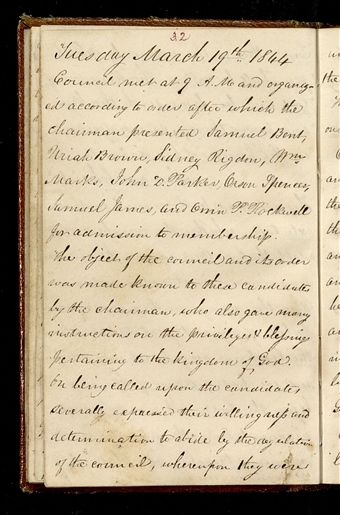 32
Tuesday March 19th. 1844
Council met at 9 A.M and organiz-
ed according to order after which the
chairman presented Samuel Bent,
Uriah Brown, Sidney Rigdon, Wm
Marks, John D. Parker, Orson Spencer,
Samuel James, and Orrin P. Rockwell
for admission to membership.
The object of the council and its order
was made known to these candidates
by the chairman, who also gave many
instructions on the privileges & blessings
pertaining to the kingdom of God.
On being called upon the candidates
severally expressed their willingness and
determination to abide by the regulations
of the council, whereupon they were